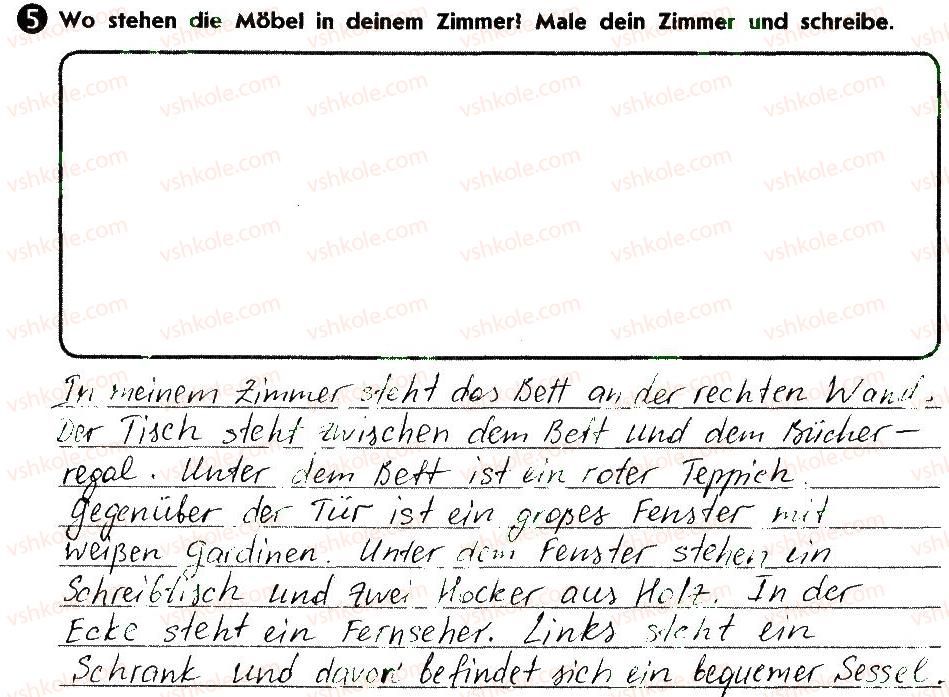 5 Wo stehen die Möbel in deinem Zimmer? Male dein Zimmer und schreibe.
In meinem Zimmer steht das Bett an der rechten Wand.
Der Tisch steht zwischen dem Bett und dem Bücher-
regal. Unter dem Bett ist ein roter Teppich.
Gegenüber der Tür ist ein großes Fenster mit
weißen Gardinen. Unter dem Fenster stehen ein
Schreibtisch und zwei Hocker aus Holz. In der
Ecke steht ein Fernseher. Links steht ein
Schrank und davor befindet sich ein bequemer Sessel.
vshkole.com